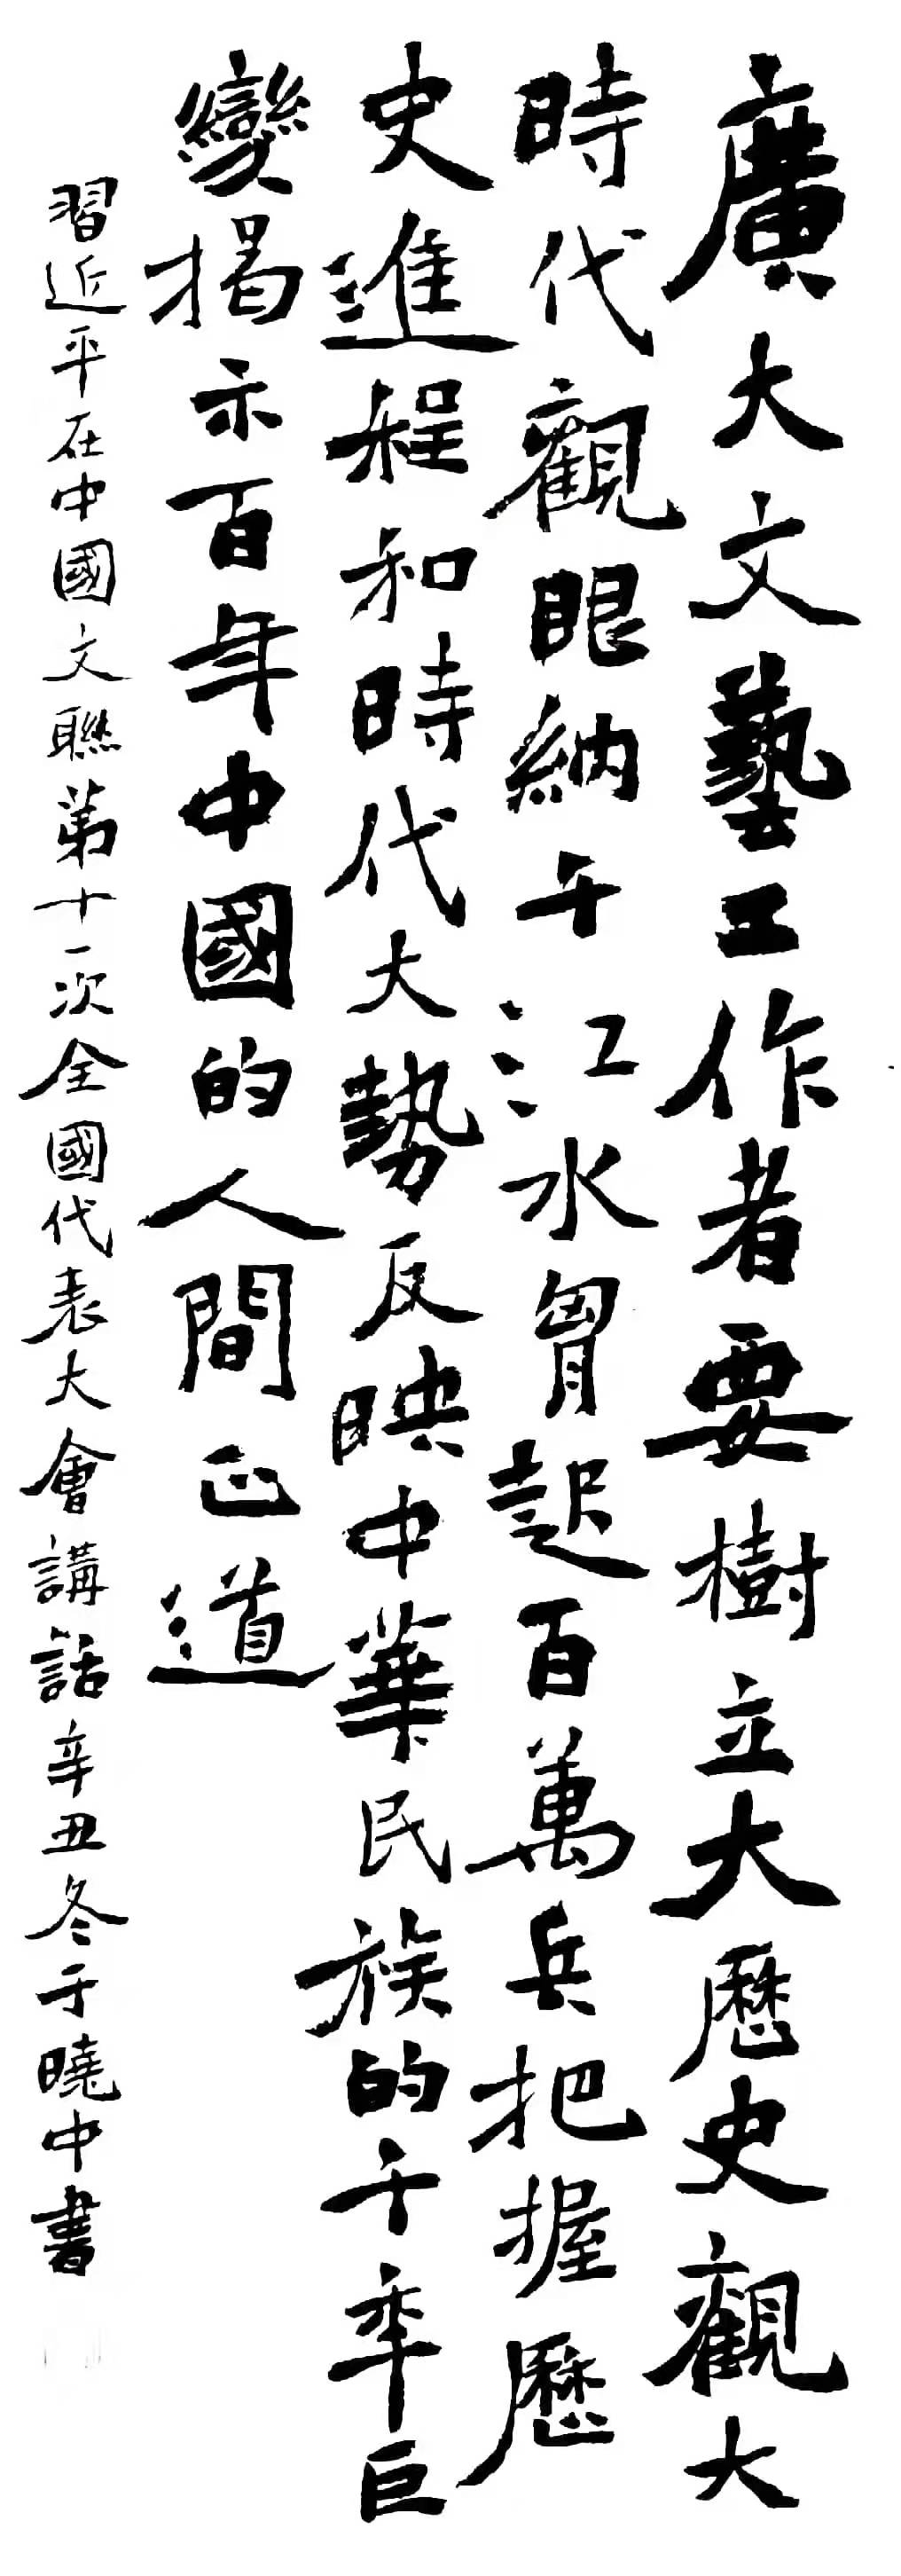 廣大文藝工作者要樹立大歷史觀大
時代觀眼納千江水胷起百萬兵把握歷
史進程和時代大勢反映中華民族的千年巨
變揭示百年中國的人間正道
習近平在中國文聯第十一次全國代表大會講話辛丑冬于曉中書